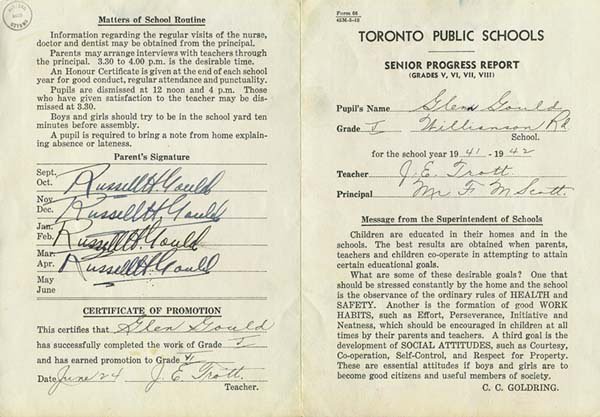 Matters of School Routine
Information regarding the regular visits of the nurse,
doctor and dentist may be obtained from the principal.
Parents may arrange interviews with teachers through
the principal. 3.30 to 4.00 p.m. is the desirable time.
An Honour Certificate is given at the end of each school
year for good conduct, regular attendance and punctuality.
Pupils are dismissed at 12 noon and 4 p.m. Those
who have given satisfaction to the teacher may be dis-
missed at 3.30.
Boys and girls should try to be in the school yard ten
minutes before assembly.
A pupil is required to bring a note from home explain-
ing absence or lateness.
Parent's Signature
Sept.
Oct. Russell H. Gould
Nov.
Dec. Russell H. Gould
Jan.
Feb. Russell H. Gould
Mar.
Apr. Russell H. Gould
May
June
CERTIFICATE OF PROMOTION
This certifies that Glen Gould
has successfully completed the work of Grade V
and has earned promotion to Grade VI
Date June 24 J. E. Trott.
Teacher.
Form 66
TORONTO PUBLIC SCHOOLS
SENIOR PROGRESS REPORT
(GRADES V, VI, VII, VIII)
Pupil's Name Glen Gould
Grade V Williamson Rd
School.
for the school year 1941 - 1942
Teacher J. E. Trott
Principal Mr F M Scott.
Message from the Superintendent of Schools
Children are educated in their homes and in the
schools. The best results are obtained when parents,
teachers and children co-operate in attempting to attain
certain educational goals.
What are some of these desirable goals? One that
should be stressed constantly by the home and the school
is the observance of the ordinary rules of HEALTH and
SAFETY. Another is the formation of good WORK
HABITS, such as Effort, Perseverance, Initiative and
Neatness, which should be encouraged in children at all
times by their parents and teachers. A third goal is the
development of SOCIAL ATTITUDES, such as Courtesy,
Co-operation, Self-Control, and Respect for Property.
These are essential attitudes if boys and girls are to
become good citizens and useful members of society.
C. C. GOLDRING.